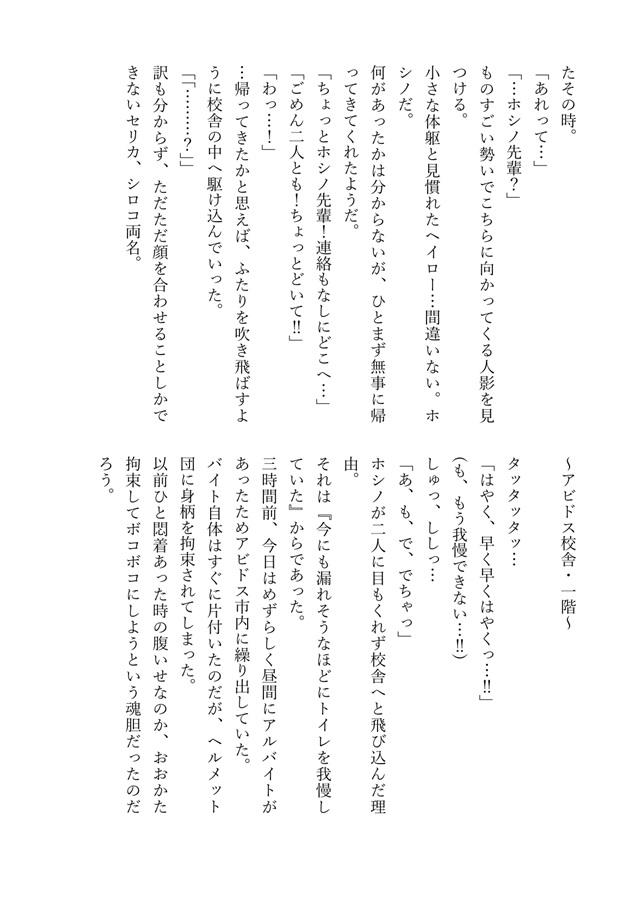 たその時。
「あれって…」
「…ホシノ先輩？」
ものすごい勢いでこちらに向かってくる人影を見
つける。
小さな体躯と見慣れたヘイロー…間違いない。ホ
シノだ。
何があったかは分からないが、ひとまず無事に帰
ってきてくれたようだ。
「ちょっとホシノ先輩！連絡もなしにどこへ…」
「ごめん二人とも！ちょっとどいて!!」
「わっ…！」
…帰ってきたかと思えば、ふたりを吹き飛ばすよ
うに校舎の中へ駆け込んでいった。
「「………？」」
訳も分からず、ただただ顔を合わせることしかで
きないセリカ、シロコ両名。
～アビドス校舎・一階～
タッタッタッ…
「はやく、早く早くはやくっ…!!」
(も、もう我慢できない…!!)
しゅっ、ししっ…
「あ、も、で、でちゃっ」
ホシノが二人に目もくれず校舎へと飛び込んだ理
由。
それは『今にも漏れそうなほどにトイレを我慢し
ていた』からであった。
三時間前、今日はめずらしく昼間にアルバイトが
あったためアビドス市内に繰り出していた。
バイト自体はすぐに片付いたのだが、ヘルメット
団に身柄を拘束されてしまった。
以前ひと悶着あった時の腹いせなのか、おおかた
拘束してボコボコにしようという魂胆だったのだ
ろう。